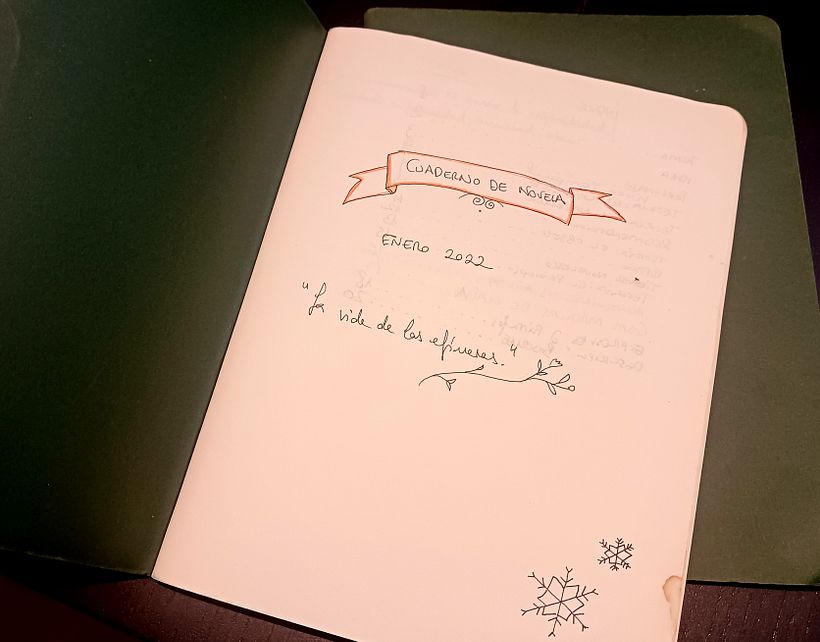 CUADERNO DE NOVELA
ENERO 2022
"La vida de las efímeras."